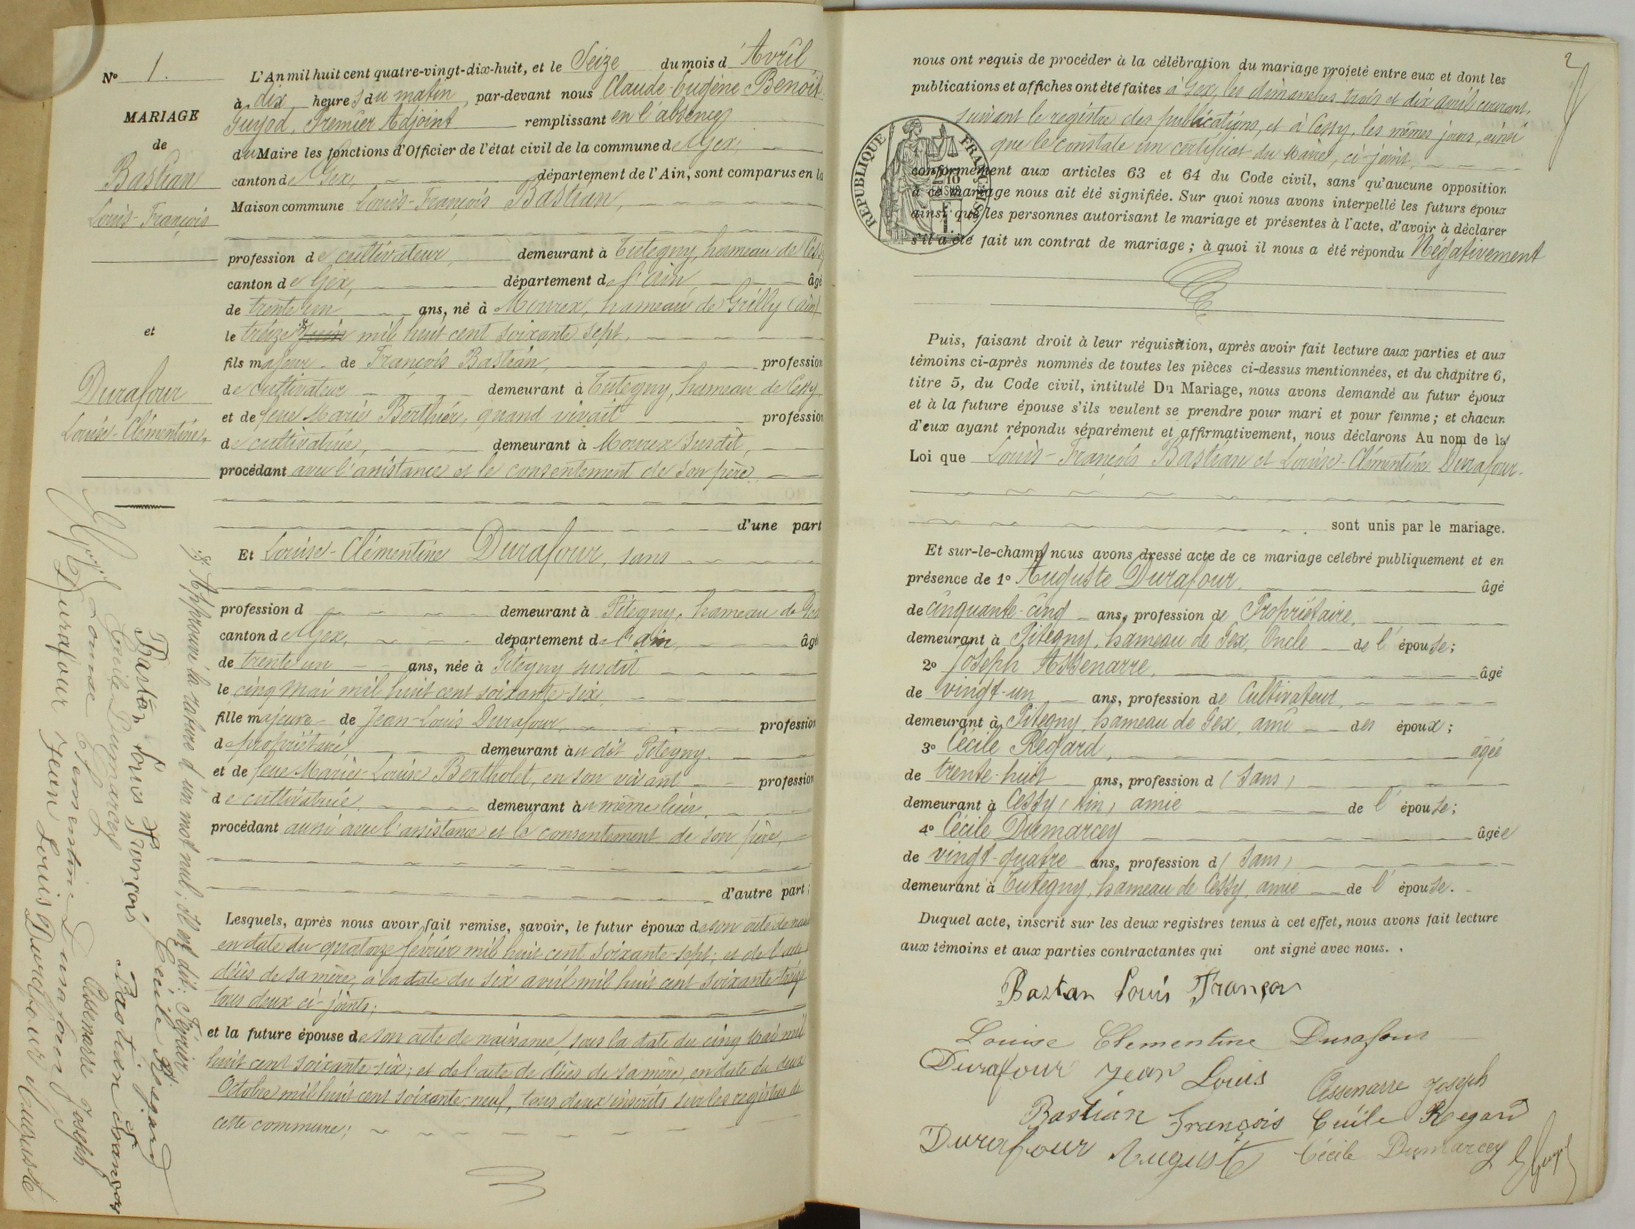 N° 1.
MARIAGE
de
Bastian
Louis-François
et
Durafour
Louise-Clémentine.
L'An mil huit cent quatre-vingt-dix-huit, et le Seize du mois d'Avril
à dix heures du matin, par-devant nous Claude Eugène Benoit
Guyod, Premier Adjoint remplissant en l'absence
du Maire les fonctions d'Officier de l'état civil de la commune de Gex,
canton de Gex, département de l'Ain, sont comparus en la
Maison commune Louis-François Bastian,
profession de cultivateur, demeurant à Tutegny, hameau de Cessy
canton de Gex, département de l'Ain, âgé
de trente un ans, né à Mourex, hameau de Grilly (Ain)
le treize juin mil huit cent soixante sept,
fils majeur de François Bastian, profession
de cultivateur demeurant à Tutegny, hameau de Cessy
et de feue Marie Berthier, quand vivait profession
de cultivatrice, demeurant à Mourex susdit,
procédant avec l'assistance et le consentement de son père.
d'une part
Et Louise-Clémentine Durafour, sans
profession d demeurant à Pitegny, hameau de Gex
canton de Gex, département de l'Ain, âgé
de trente un ans, née à Pitegny susdit
le cinq Mai mil huit cent soixante-six,
fille majeure de Jean-Louis Durafour, profession
de propriétaire, demeurant au dit Pitegny.
et de feue Marie Louise Bertholet, en son vivant profession
de cultivatrice, demeurant au même lieu,
procédant aussi avec l'assistance et le consentement de son père,
d'autre part;
Lesquels, après nous avoir fait remise, savoir, le futur époux de son acte de naissance
en date du quatorze février mil huit cent soixante-sept; et de l'acte
décès de sa mère, à la date du six avril mil huit cent soixante
tous deux ci-joints;
et la future épouse de son acte de naissance, sous la date du cinq Mai mil
huit cent soixante-six; et de l'acte de décès de sa mère, en date du deux
Octobre mil huit cent soixante-neuf, tous deux inscrits sur les registres de
cette commune;
Approuvé la rature d'un mot nul; il est dit: Février
Bastian Louis François Cécile Regard
Bastian François
Cécile Dumarcey
Louise Clementine Durafour Assenarre Joseph
Durafour Jean Louis Durafour Auguste
2
nous ont requis de procéder à la célébration du mariage projeté entre eux et dont les
publications et affiches ont été faites à Gex, les dimanches trois et dix avril courant,
suivant le registre des publications, et à Cessy, les mêmes jours, ainsi
que le constate un certificat du Maire, ci-joint
RÉPUBLIQUE FRANÇAISE
conformément aux articles 63 et 64 du Code civil, sans qu'aucune opposition
à ce mariage nous ait été signifiée. Sur quoi nous avons interpellé les futurs époux
ainsi que les personnes autorisant le mariage et présentes à l'acte, d'avoir à déclarer
s'il a été fait un contrat de mariage; à quoi il nous a été répondu Négativement
Puis, faisant droit à leur réquisition, après avoir fait lecture aux parties et aux
témoins ci-après nommés de toutes les pièces ci-dessus mentionnées, et du chapitre 6,
titre 5, du Code civil, intitulé Du Mariage, nous avons demandé au futur époux
et à la future épouse s'ils veulent se prendre pour mari et pour femme; et chacun
d'eux ayant répondu séparément et affirmativement, nous déclarons Au nom de la
Loi que Louis-François Bastian et Louise-Clémentine Durafour.
sont unis par le mariage.
Et sur-le-champ nous avons dressé acte de ce mariage célébré publiquement et en
présence de 1° Auguste Durafour. âgé
de cinquante-cinq ans, profession de Propriétaire,
demeurant à Pitegny, hameau de Gex, Oncle de l'épouse;
2° Joseph Assenarre, âgé
de vingt-un ans, profession de Cultivateur,
demeurant à Pitegny, hameau de Gex, ami des époux;
3° Cécile Regard, âgée
de trente-huit ans, profession d (sans)
demeurant à Cessy (Ain) amie de l'épouse;
4° Cécile Dumarcey âgée
de vingt-quatre ans, profession d (sans)
demeurant à Tutegny, hameau de Cessy, amie de l'épouse.
Duquel acte, inscrit sur les deux registres tenus à cet effet, nous avons fait lecture
aux témoins et aux parties contractantes qui ont signé avec nous.
Bastian Louis François
Louise Clementine Durafour
Durafour Jean Louis Assenarre Joseph
Bastian François Cécile Regard
Durafour Auguste Cécile Dumarcey